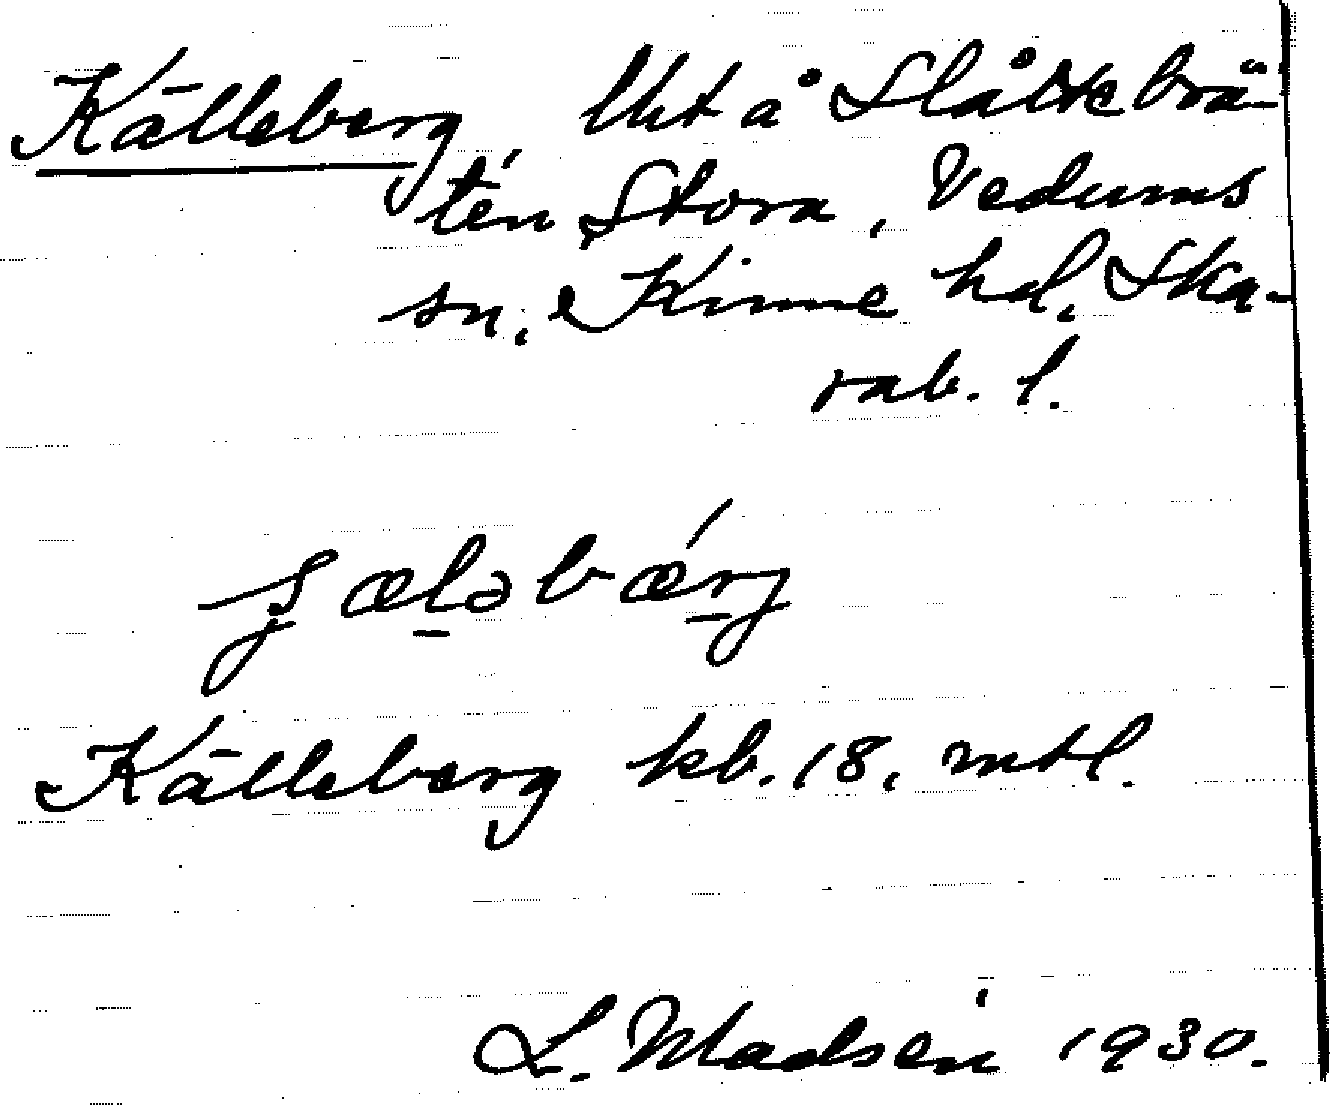 Källeberg, Utt å Slåttebrä-
ten Stora, Vedums
sn, Kinne hd, Ska-
rab. l.
Källeberg kb. 18, mtl.
L. Madsén 1930.